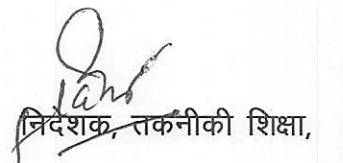 निदेशक, तकनीकी शिक्षा,